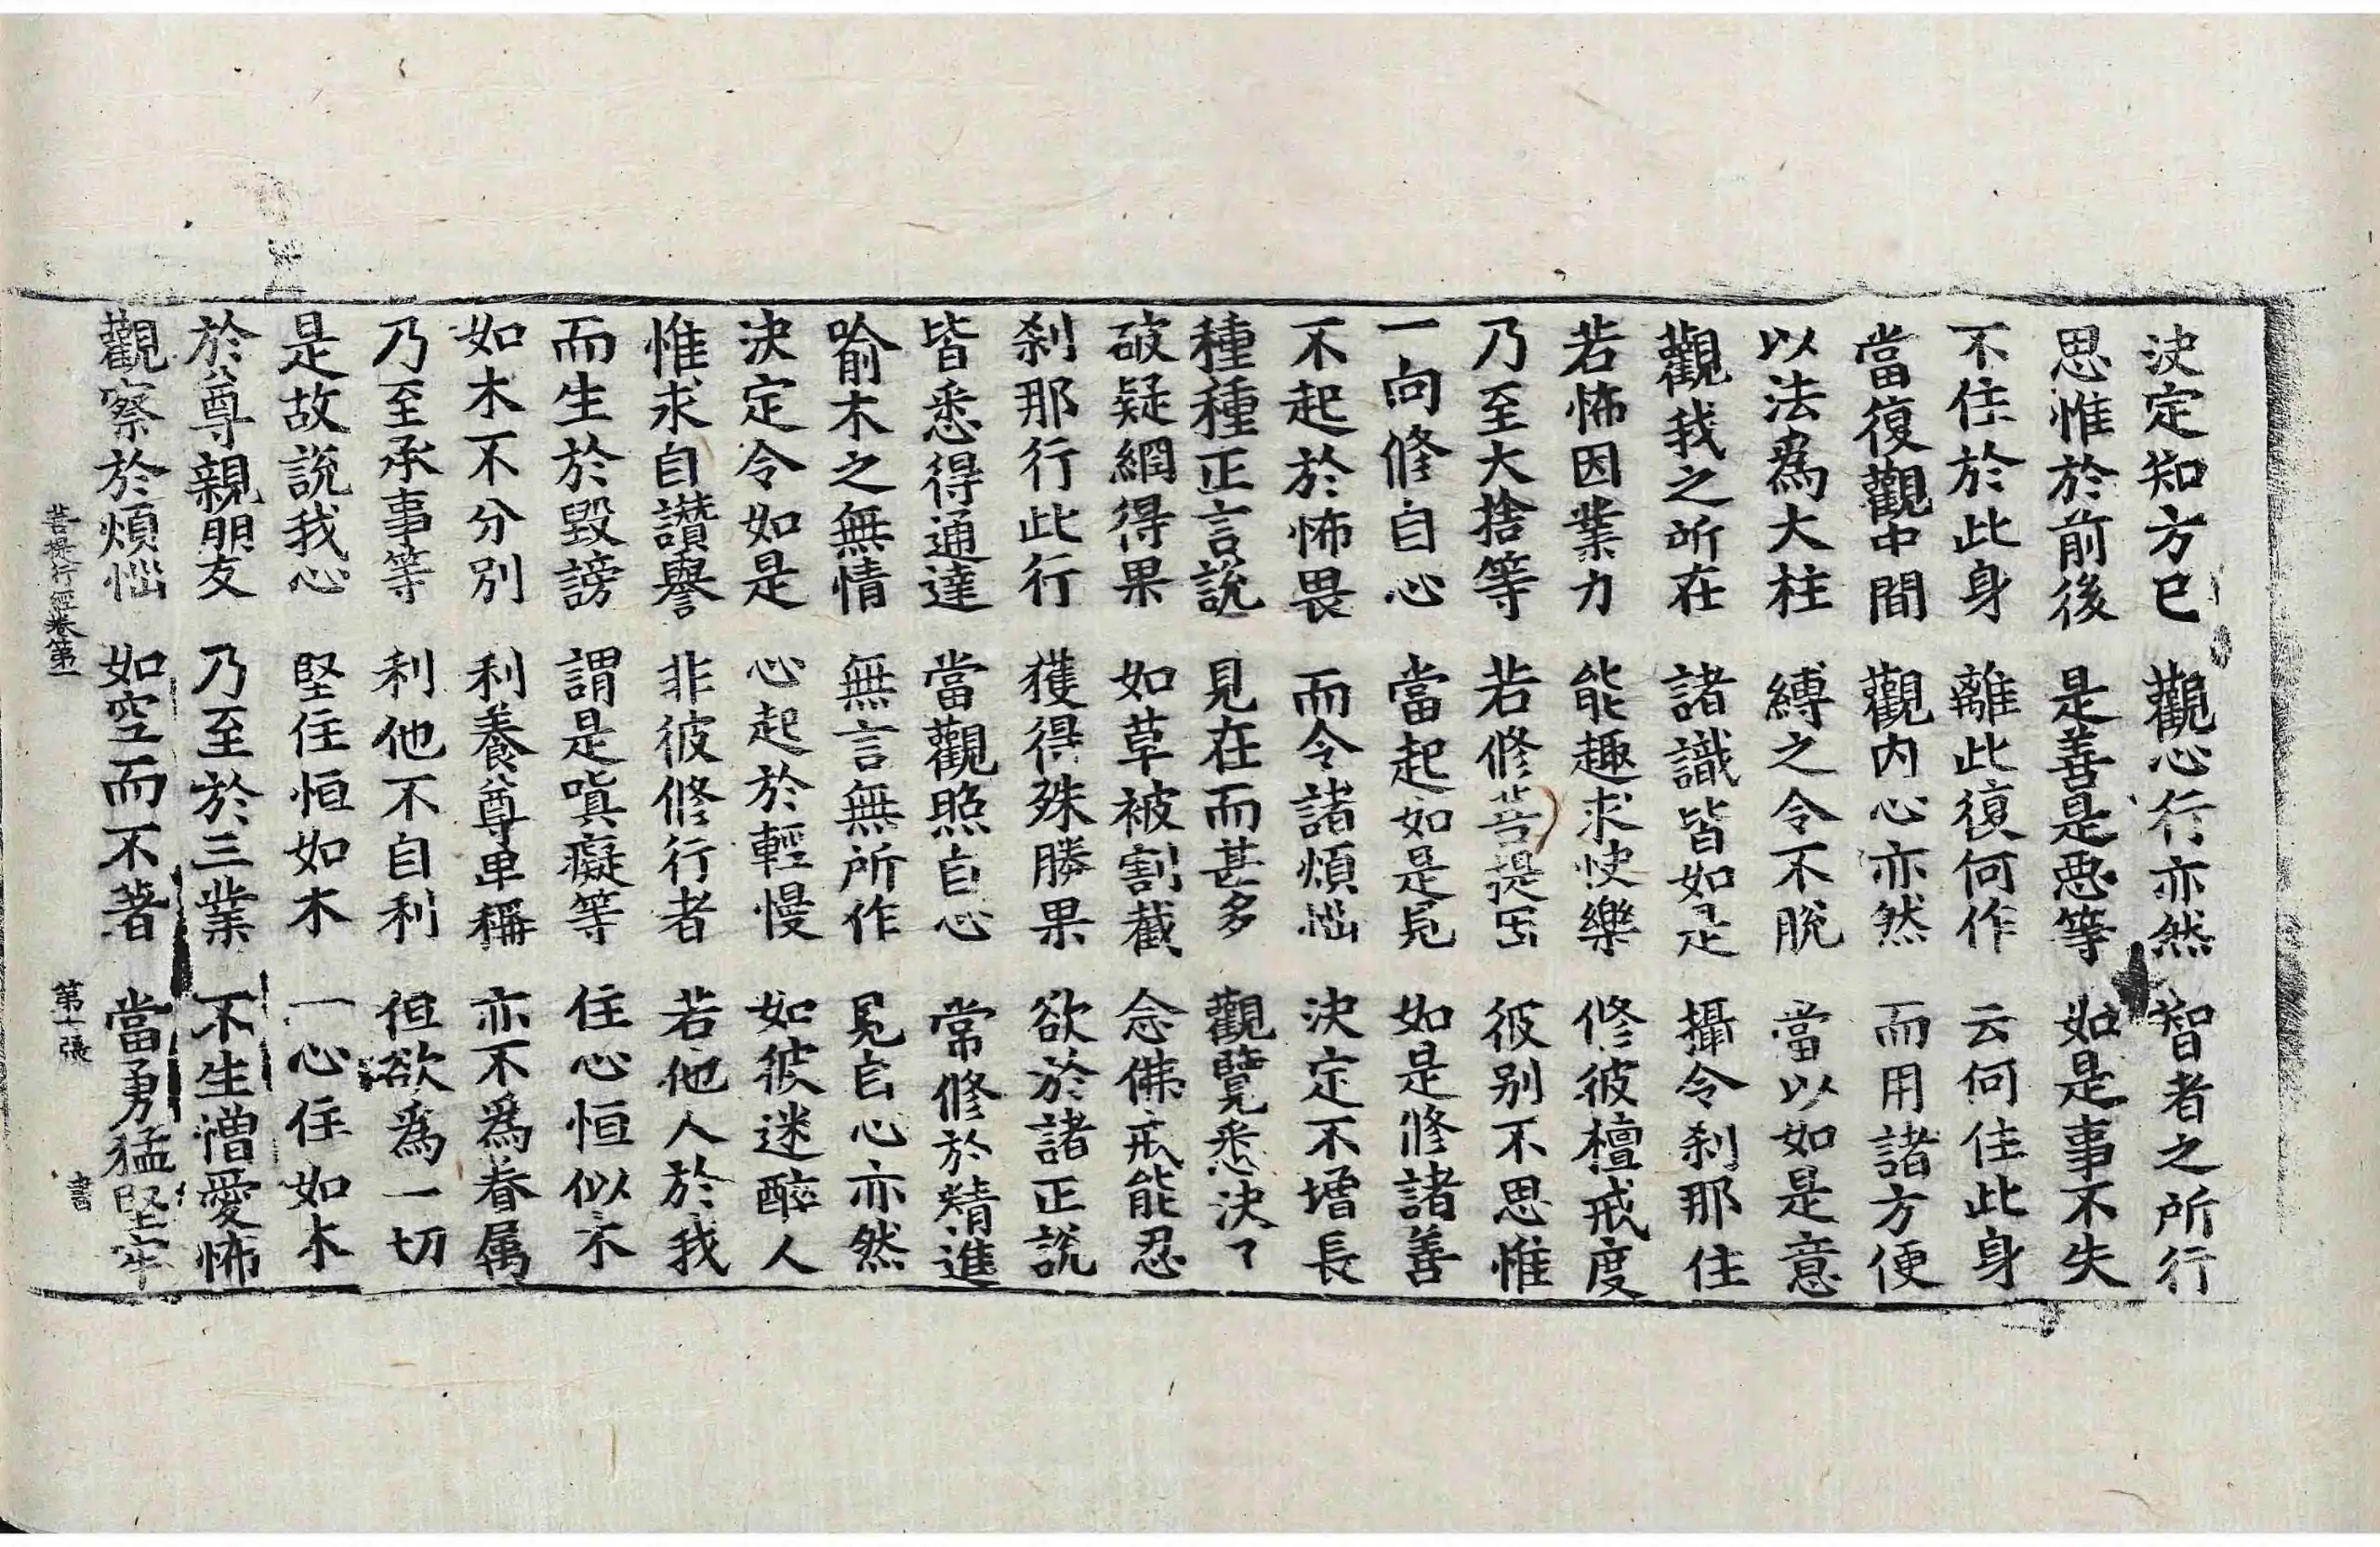 決定知方已　觀心行亦然　智者之所行
思惟於前後　是善是惡等　如是事不失
不住於此身　離此復何作　云何住此身
當復觀中間　觀内心亦然　而用諸方便
以法爲大柱　縛之令不脫　當以如是意
觀我之所在　諸識皆如是　攝令刹那住
若怖因業力　能趣求快樂　修彼檀戒度
乃至大捨等　若修菩提因　彼别不思惟
一向修自心　當起如是見　如是修諸善
不起於怖畏　而令諸煩惱　決定不增長
種種正言說　見在而甚多　觀覽悉決了
破疑網得果　如草被割截　念佛戒能忍
刹那行此行　獲得殊勝果　欲於諸正說
皆悉得通達　當觀照自心　常修於精進
喻木之無情　無言無所作　見自心亦然
決定令如是　心起於輕慢　如彼迷醉人
惟求自讃譽　非彼修行者　若他人於我
而生於毀謗　謂是嗔癡等　住心恒似木
如木不分別　利養尊卑稱　亦不爲眷属
乃至承事等　利他不自利　但欲爲一切
是故說我心　堅住恒如木　一心住如木
於尊親朋友　乃至於三業　不生憎愛怖
觀察於煩惱　如空而不著　當勇猛堅牢
菩提行經卷第一　第十張　書